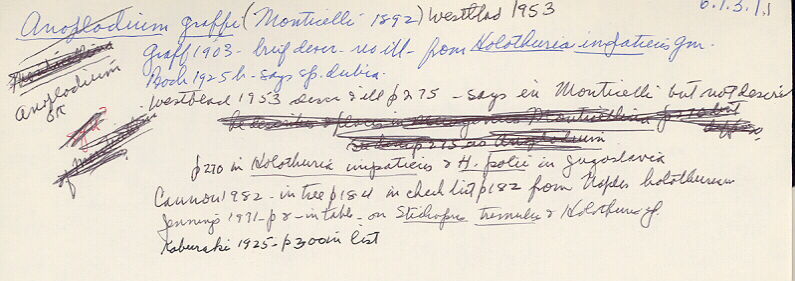 Anoplodium graffi (Monticelli 1892) Westblad 1953
6.1.3.1.1
Graff 1903 - brief descr - no ill - from Holothuria impaticis Gm.
Bock 1925 b - says sp. dubia.
Anoplodium
Westblad 1953 descr & ill p 275 - says in Monticelli but not descr'd
p 270 in Holothuria impaticis & H. polii in Yugoslavia
Cannon 1982 - in tree p 184 in check list p 182 from Naples holothurian
Jennings 1971 - p 8 - in table - on Stichopus tremulus & Holothuria sp.
Kaburaki 1925 - p 300 in list